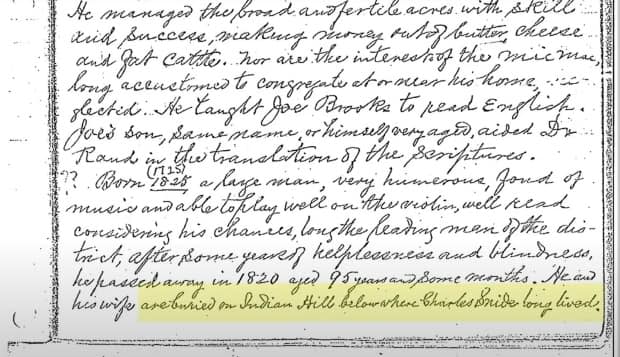 He managed the broad and fertile acres with skill
and success, making money out of butter, cheese
and fat cattle. Nor are the interests of the Micmac,
long accustomed to congregate at or near his home,
glected. He taught Joe Brooks to read English.
Joe's son, same name, or himself very aged, aided Dr
Rand in the translation of the scriptures.
(1725)
?? Born 1825 a large man, very humerous, fond of
music and able to play well on the violin, well read
considering his chances, long the leading man of the dis-
trict, after some years of helplessness and blindness,
he passed away in 1820 aged 95 years and some months. He and
his wife are buried on Indian Hill below where Charles Snide long lived.